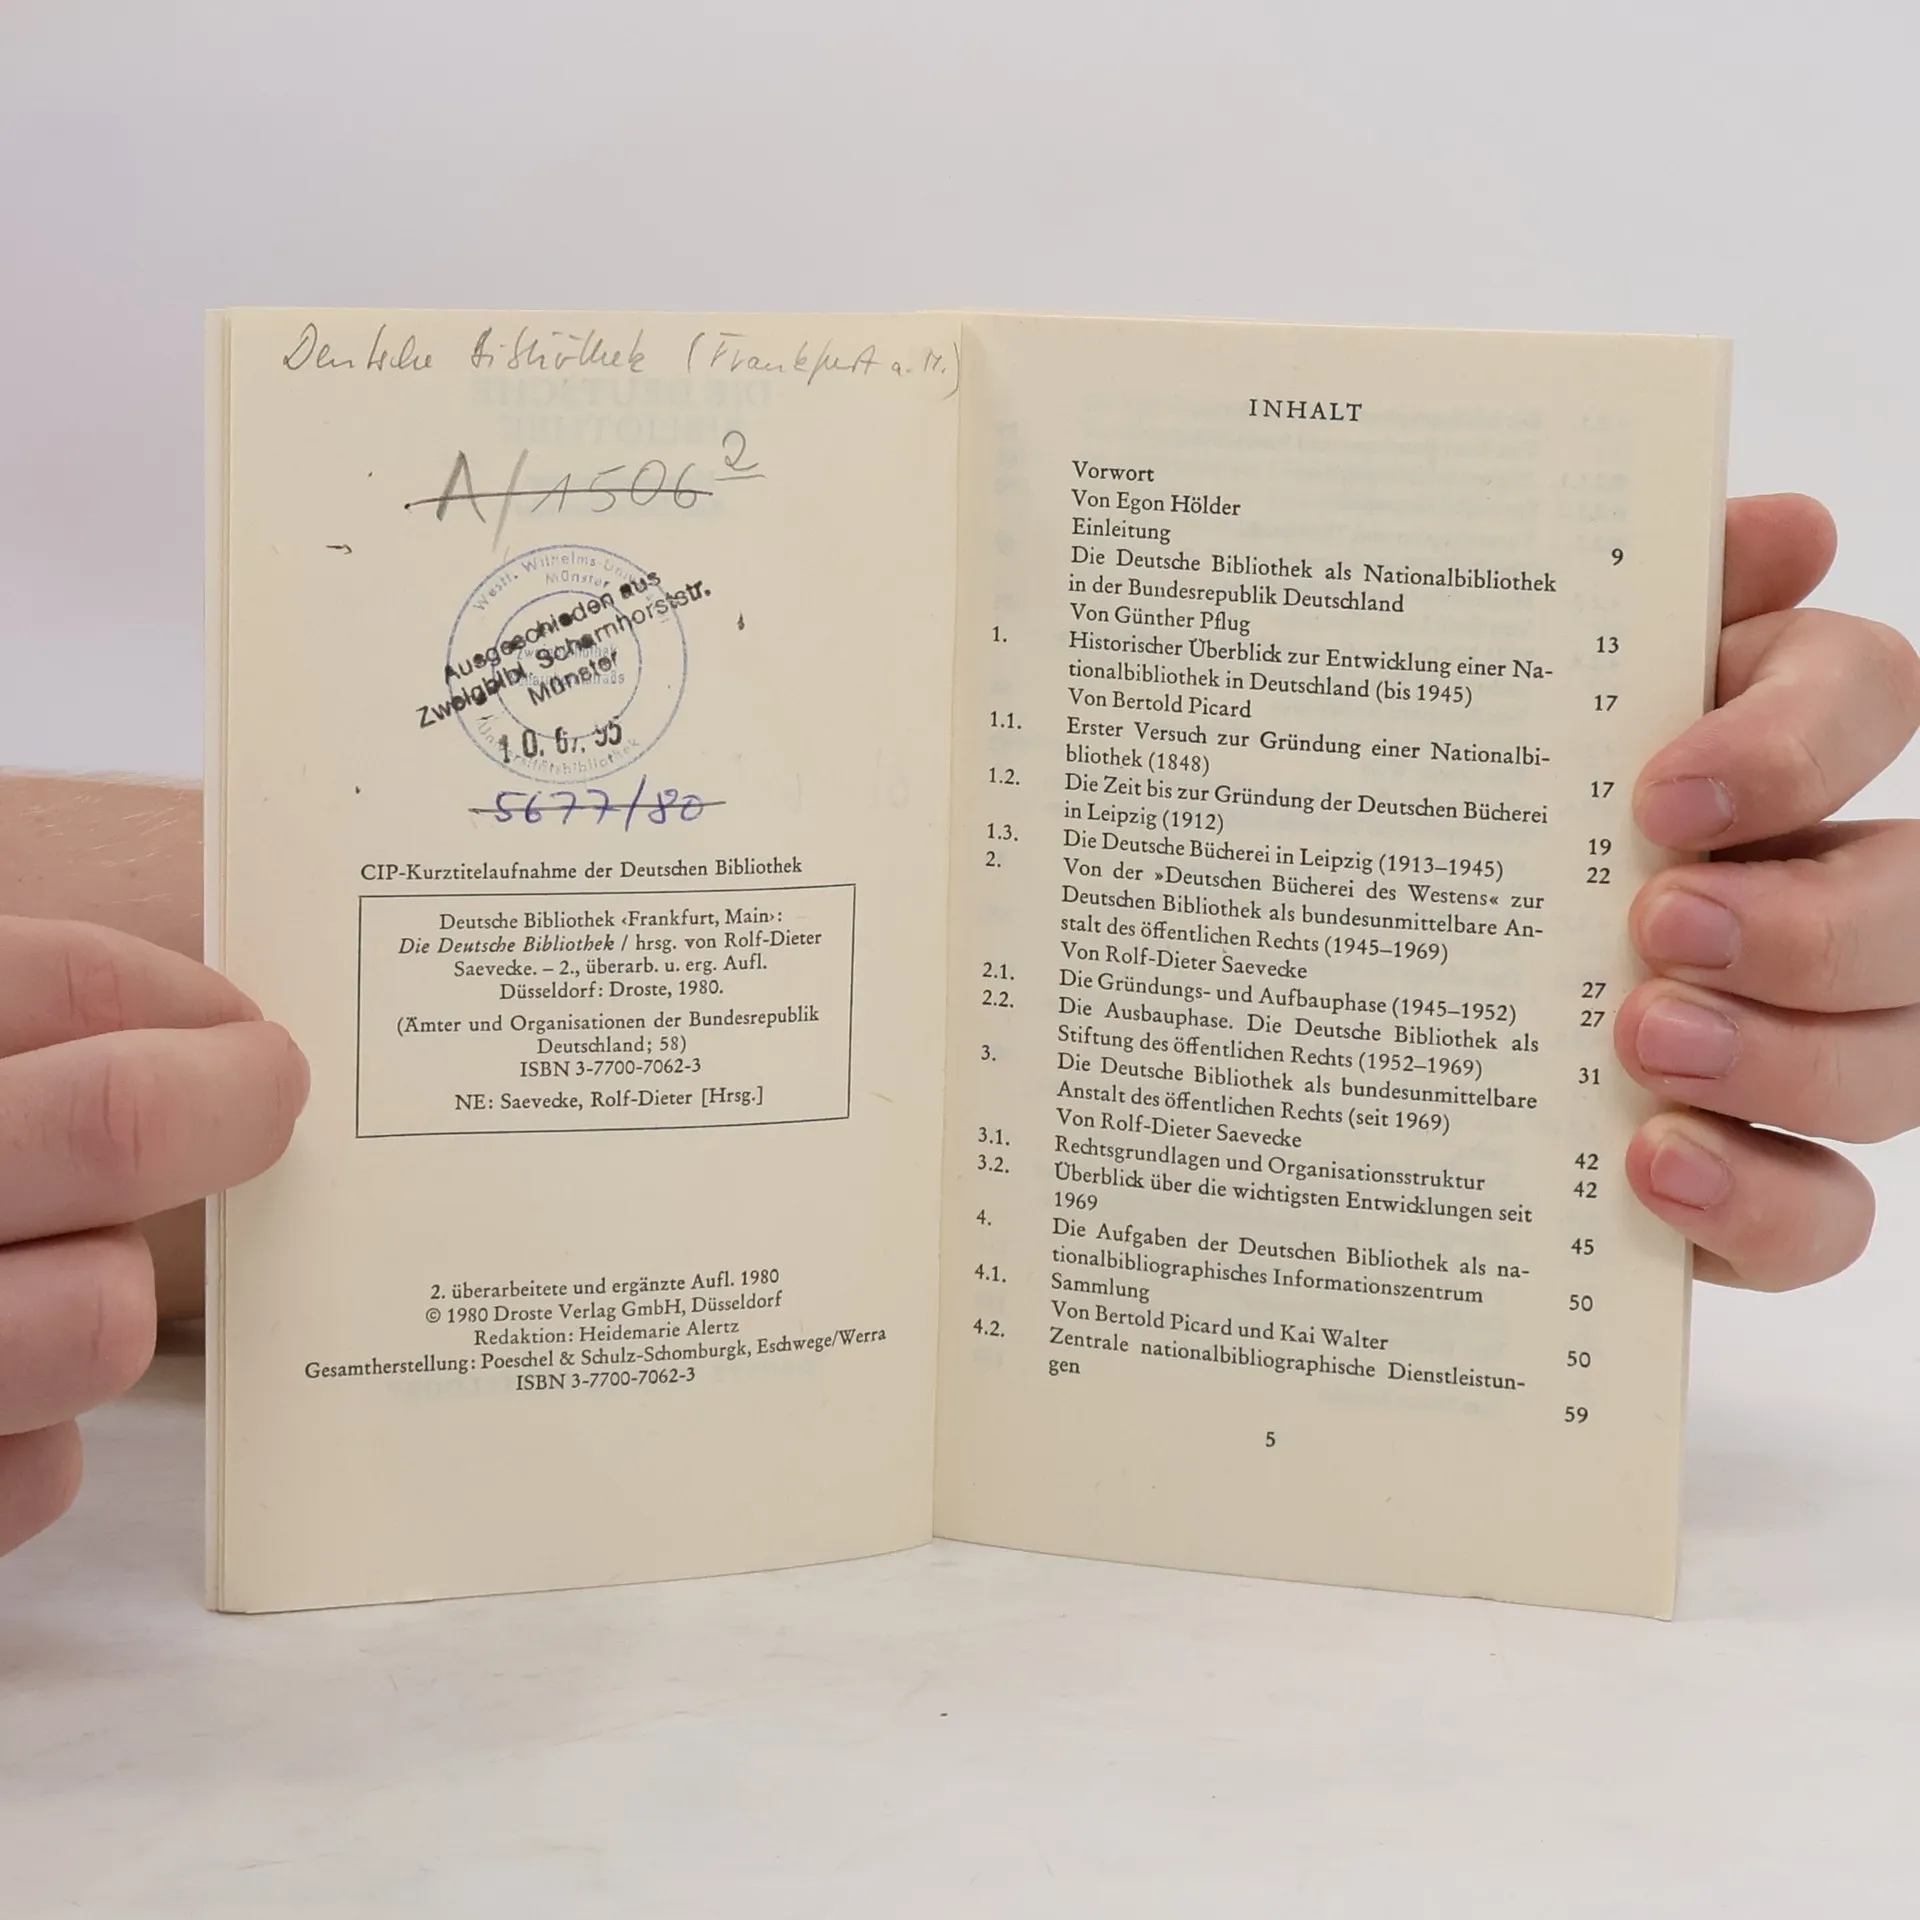 Deutsche Bibliothek (Frankfurt a. M.)
A/1506²
Westf. Wilhelms-
Münster
Ausgeschieden aus
Zweigbibl. Scharnhorststr.
Münster
10. 67. 95
Universitätsbibliothek
5677/80
CIP-Kurztitelaufnahme der Deutschen Bibliothek
Deutsche Bibliothek ‹Frankfurt, Main›:
Die Deutsche Bibliothek / hrsg. von Rolf-Dieter
Saevecke. – 2., überarb. u. erg. Aufl.
Düsseldorf: Droste, 1980.
(Ämter und Organisationen der Bundesrepublik
Deutschland; 58)
ISBN 3-7700-7062-3
NE: Saevecke, Rolf-Dieter [Hrsg.]
2. überarbeitete und ergänzte Aufl. 1980
© 1980 Droste Verlag GmbH, Düsseldorf
Redaktion: Heidemarie Alertz
Gesamtherstellung: Poeschel & Schulz-Schomburgk, Eschwege/Werra
ISBN 3-7700-7062-3
INHALT
Vorwort
Von Egon Hölder 9
Einleitung
Die Deutsche Bibliothek als Nationalbibliothek
in der Bundesrepublik Deutschland
Von Günther Pflug 13
1. Historischer Überblick zur Entwicklung einer Na-
tionalbibliothek in Deutschland (bis 1945)
Von Bertold Picard 17
1.1. Erster Versuch zur Gründung einer Nationalbi-
bliothek (1848) 17
1.2. Die Zeit bis zur Gründung der Deutschen Bücherei
in Leipzig (1912) 19
1.3. Die Deutsche Bücherei in Leipzig (1913–1945) 22
2. Von der »Deutschen Bücherei des Westens« zur
Deutschen Bibliothek als bundesunmittelbare An-
stalt des öffentlichen Rechts (1945–1969)
Von Rolf-Dieter Saevecke 27
2.1. Die Gründungs- und Aufbauphase (1945–1952) 27
2.2. Die Ausbauphase. Die Deutsche Bibliothek als
Stiftung des öffentlichen Rechts (1952–1969) 31
3. Die Deutsche Bibliothek als bundesunmittelbare
Anstalt des öffentlichen Rechts (seit 1969)
Von Rolf-Dieter Saevecke 42
3.1. Rechtsgrundlagen und Organisationsstruktur 42
3.2. Überblick über die wichtigsten Entwicklungen seit
1969 45
4. Die Aufgaben der Deutschen Bibliothek als na-
tionalbibliographisches Informationszentrum 50
4.1. Sammlung
Von Bertold Picard und Kai Walter 50
4.2. Zentrale nationalbibliographische Dienstleistun-
gen 59
5